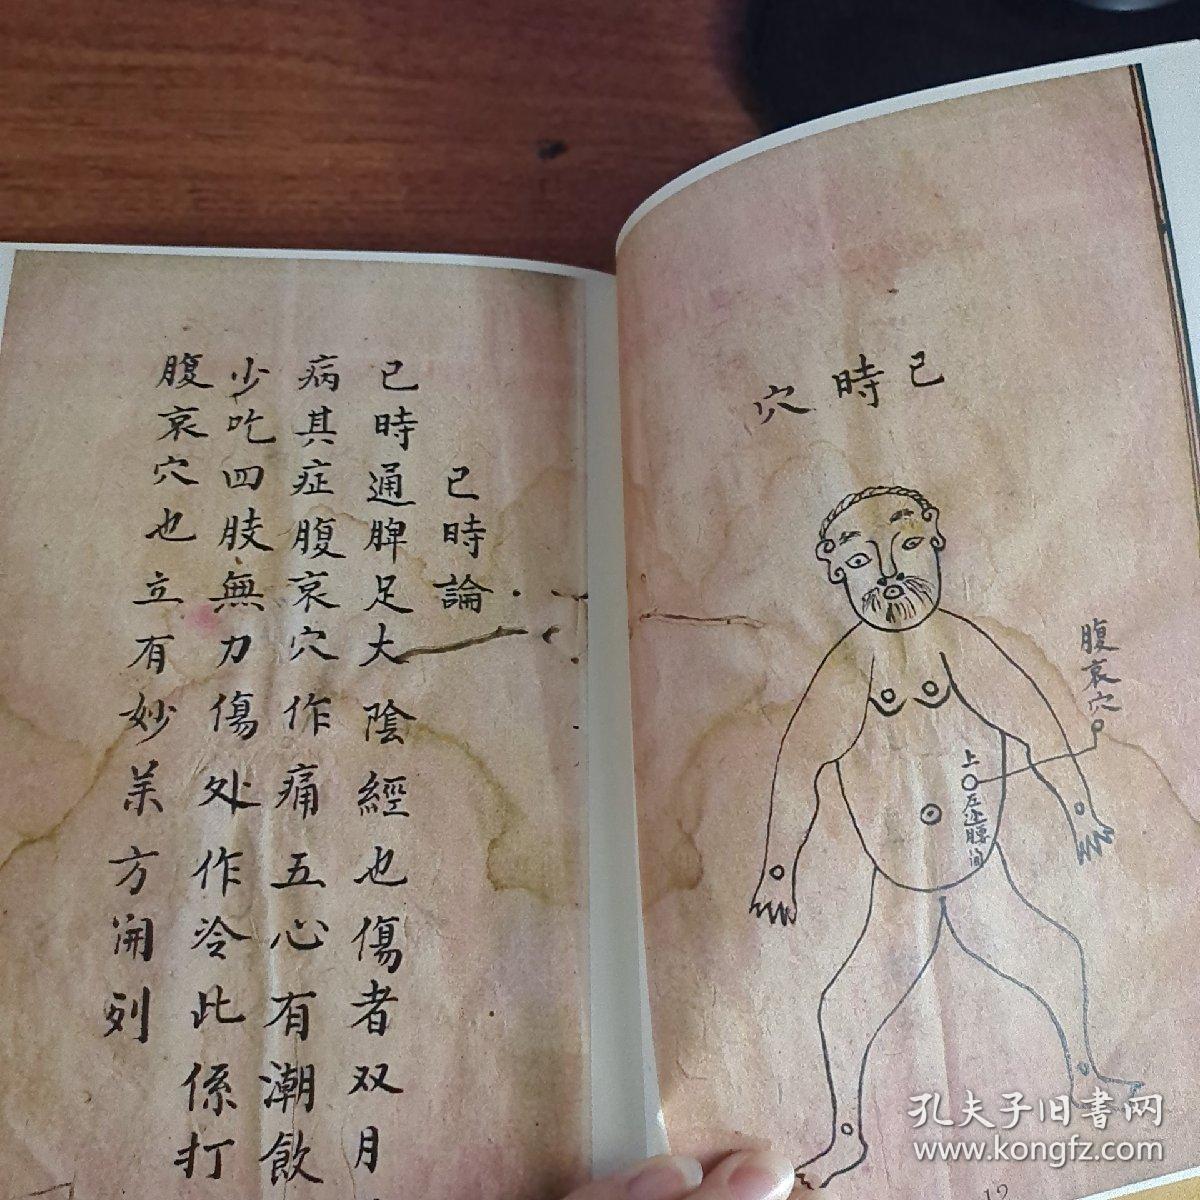 巳時穴
腹哀穴
上
左邊腰間
12
巳時論
巳時通脾足太陰經也傷者双月
病其症腹哀穴作痛五心有潮飲
少吃四肢無力傷处作冷此係打
腹哀穴也立有妙羔方開列
孔夫子旧書网
www.kongfz.com